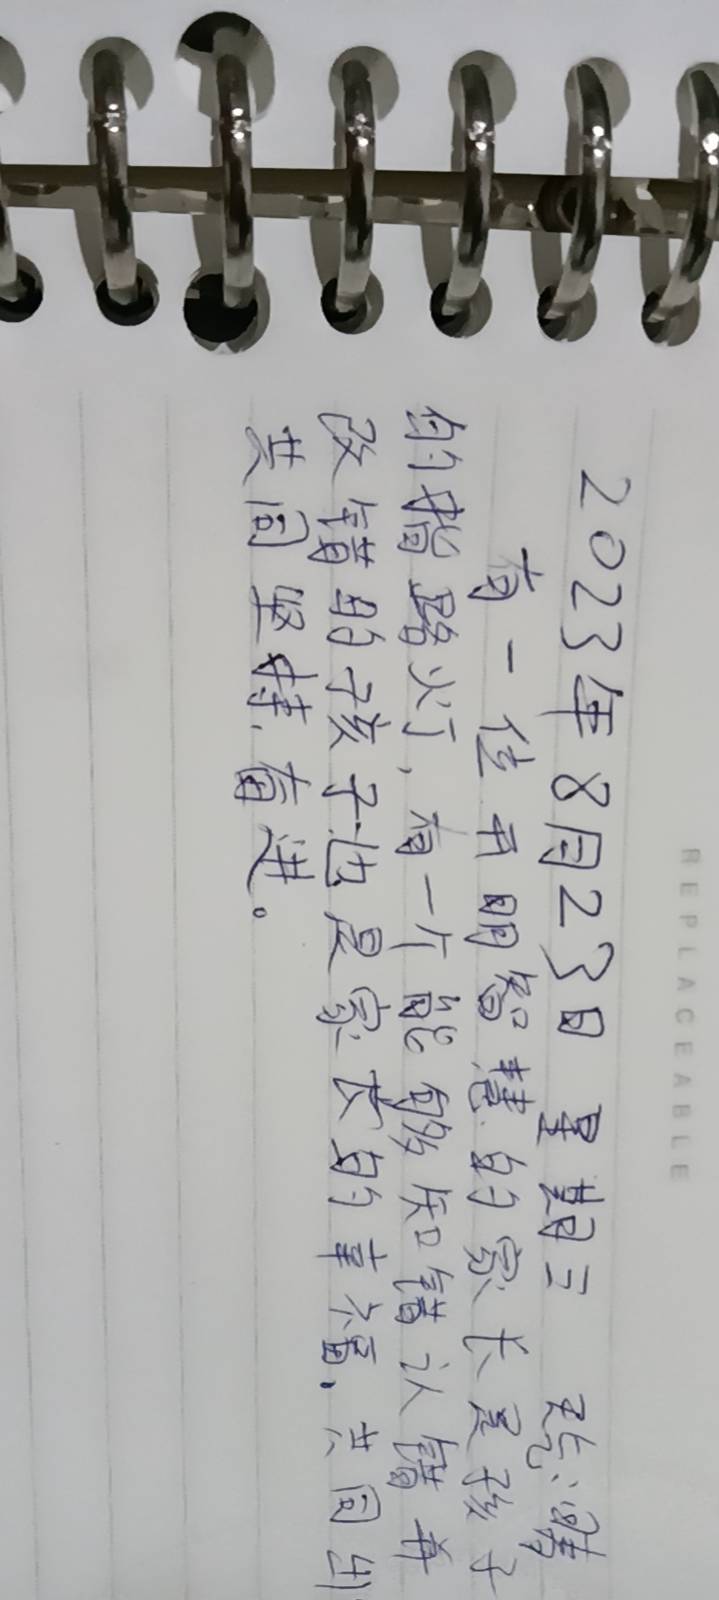 REPLACEABLE
2023年8月23日 星期三 
有一位开明智慧的家长是孩子
的指路灯,有一个能够知错认错并
改错的孩子也是家长的幸福,共同
共同坚持,奋进。